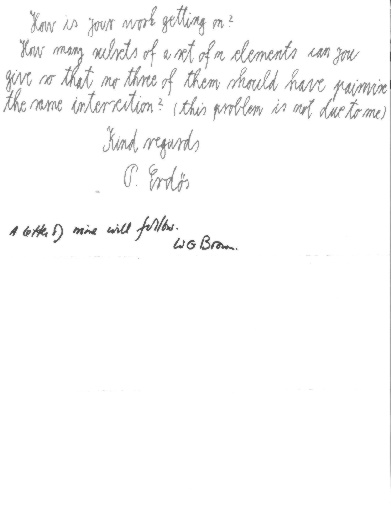 How is your work getting on?
How many subsets of a set of n elements can you
give so that no three of them should have pairwise
the same intersection? (this problem is not due to me)
Kind regards
P. Erdős
A letter of mine will follow.
W G Brown.